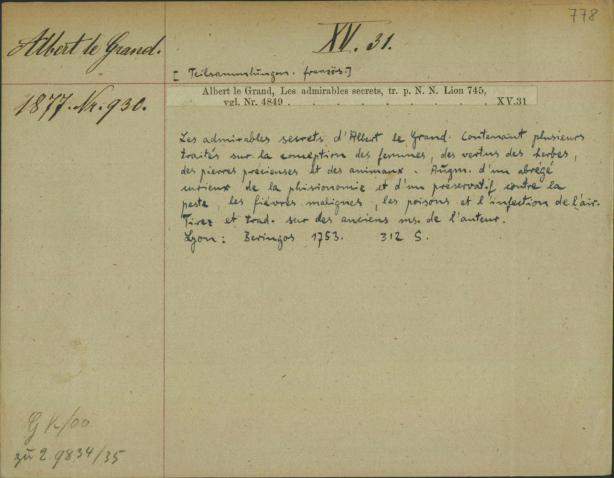 778
Albert le Grand.
XV. 31.
[Teilsammlungen. französ.]
1877. Nr. 930.
Albert le Grand, Les admirables secrets, tr. p. N. N. Lion 745,
vgl. Nr. 4849 . . . . . . . . . . . . . . . XV.31
Les admirables secrets d'Albert le Grand. Contenant plusieurs
traités sur la conception des femmes, des vertus des herbes,
des pierres précieuses et des animaux. Augm. d'un abrégé
curieux de la phisionomie et d'un préservatif contre la
peste, les fièvres malignes, les poisons et l'infection de l'air.
Tirez et trad. sur des anciens ms. de l'auteur.
Lyon: Beringos 1753. 312 S.
zu 2.9834/35